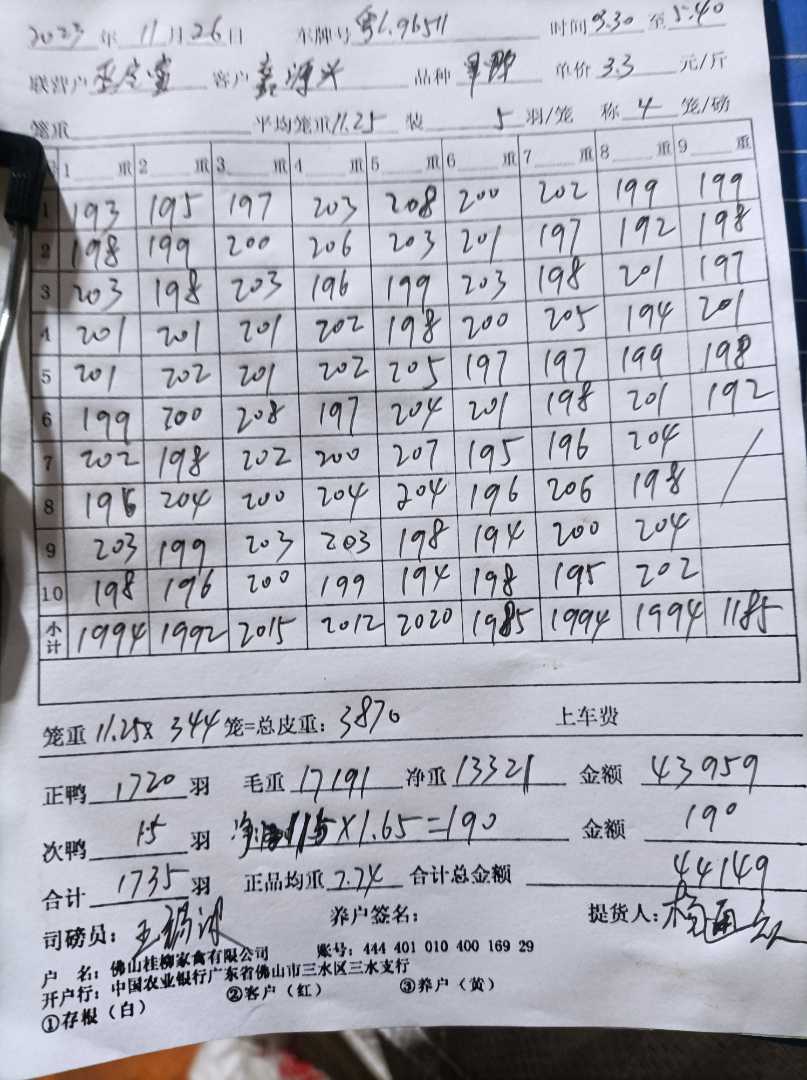 2023 年 11 月 26 日 车牌号 粤L.96511 时间 3.30 至 5.40
联营户 客户 嘉源兴 品种 单价 3.3 元/斤
笼重 平均笼重 11.25 装 5 羽/笼 称 4 笼/磅
1 重 2 重 3 重 4 重 5 重 6 重 7 重 8 重 9 重
1 193 195 197 203 208 200 202 199 199
2 198 199 200 206 203 201 197 192 198
3 203 198 203 196 199 203 198 201 197
4 201 201 201 202 198 200 205 194 201
5 201 202 201 202 205 197 197 199 198
6 199 200 208 197 204 201 198 201 192
7 202 198 202 200 207 195 196 204
8 196 204 200 204 204 196 206 198
9 203 199 203 203 198 194 200 204
10 198 196 200 199 194 198 195 202
小计 1994 1992 2015 2012 2020 1985 1994 1994 1185
笼重 11.25x 344 笼=总皮重: 3870 上车费
正鸭 1720 羽 毛重 17191 净重 13321 金额 43959
次鸭 15 羽 115 x 1.65 = 190 金额 190
合计 1735 羽 正品均重 7.74 合计总金额 44149
司磅员: 养户签名: 提货人:
户 名: 佛山桂柳家禽有限公司 账号: 444 401 010 400 169 29
开户行: 中国农业银行广东省佛山市三水区三水支行
①存根（白） ②客户（红） ③养户（黄）